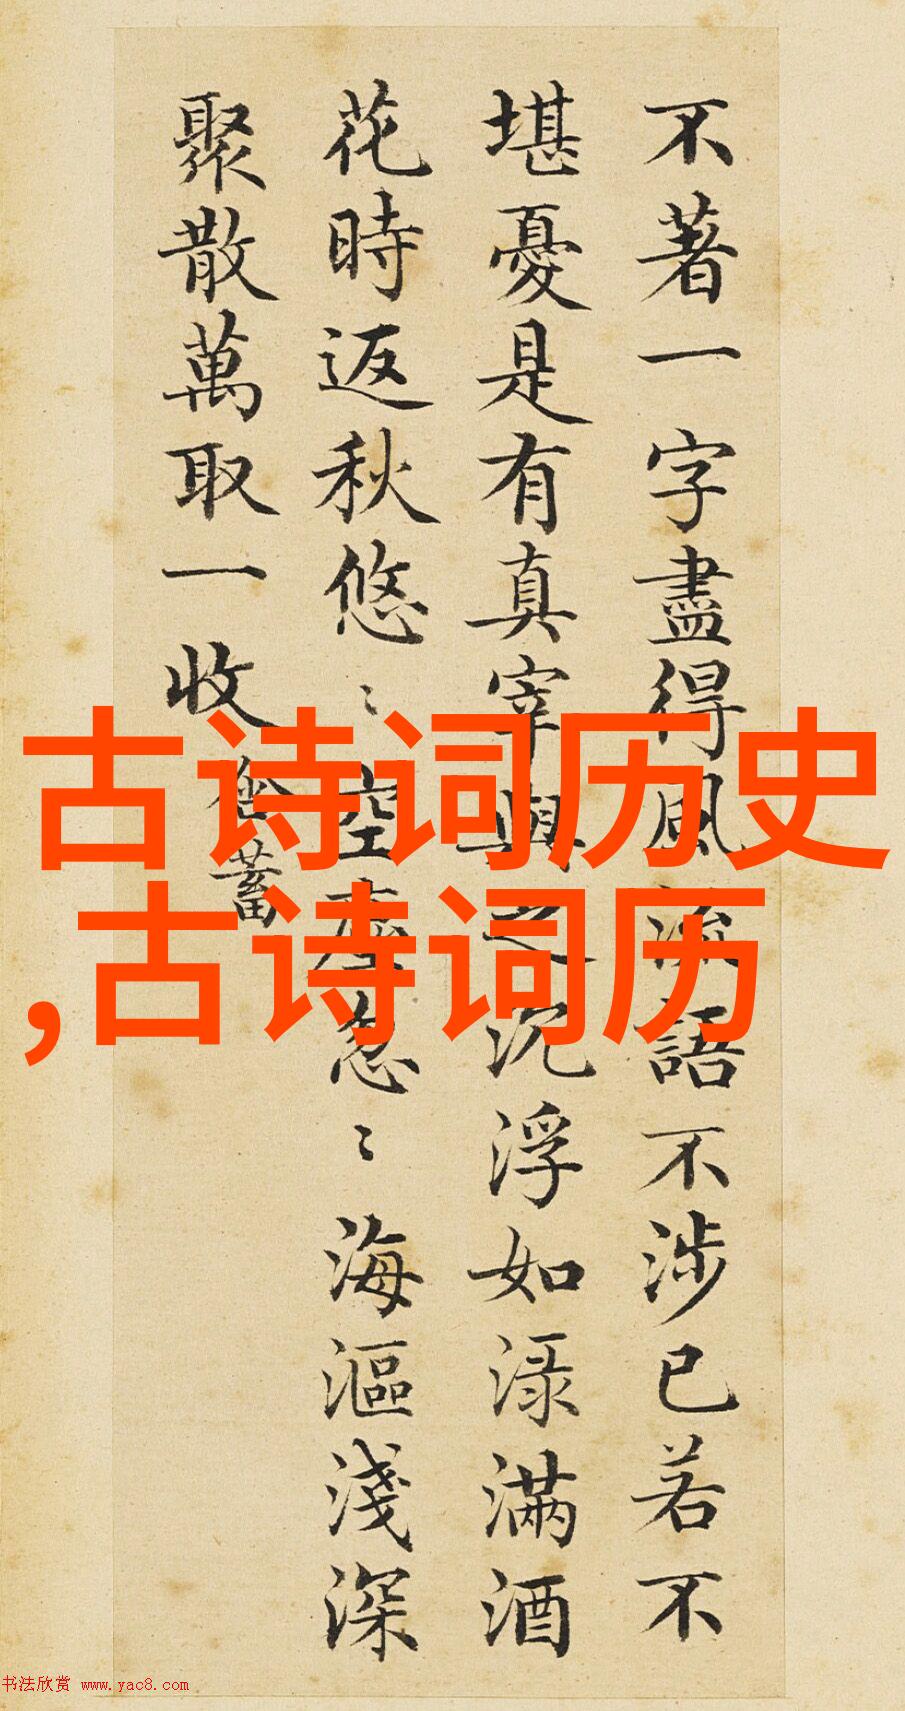 不著一字盡得風流語不涉已若不
堪憂是有真宰與之沉浮如渌滿酒
花時返秋悠〻空塵忽〻海漚淺深
聚散萬取一收
含蓄
古诗词历史
,古诗词历
书法欣赏 www.yac8.com